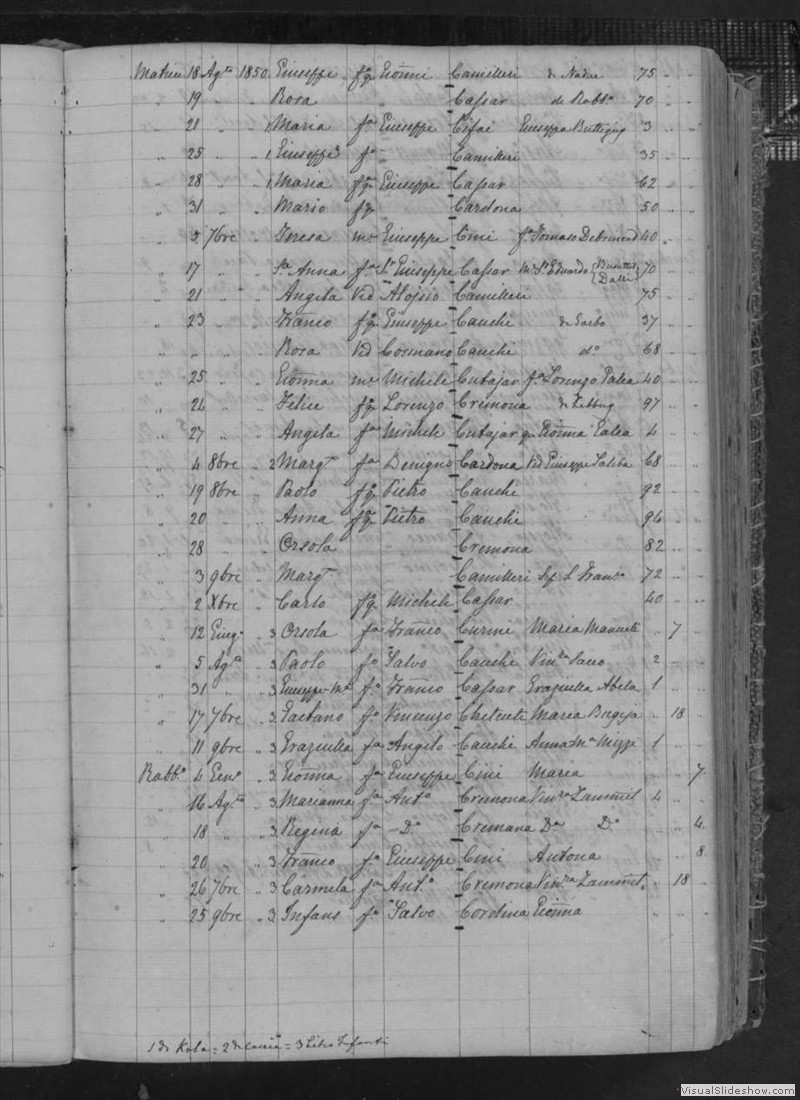 Matrice 18 Agto 1850 Giuseppe fq Gioñni Camilleri de Nadur 75 " "
" 19 " " Rosa " " Cassar de Rabbo 70 " "
" 21 " 1 Maria fa Giuseppe Cifai Giuseppa Buttigieg 3 " "
" 25 " " 1 Giuseppe fo " Camilleri 35 " "
" 28 " " 1 Maria fq Giuseppe Cassar 62 " "
" 31 " " Mario fq Cardona 50 " "
" 3 7bre " Teresa me Giuseppe Cini fa Tomaso 40 "
" 17 " " Sa Anna fa Sr Giuseppe Cassar Sr Eduardo 70 "
" 21 " " Angela Vid Aloisio Camilleri 75 "
" 23 " " Franco fq Giuseppe Cauchi 37 " "
" " " Rosa Vid Cosmano Cauchi do 68 " "
" 25 " " Gioñna me Michele Cutajar fa Lorenzo 40 " "
" 26 " " Felice fq Lorenzo Cremona de Zebbug 97 " "
" 27 " " Angela fa Michele Cutajar Gioñna Galea 4 " "
" 4 8bre " 2 Margta fa Benigno Cardona Vid Giuseppe Saliba 68 " "
" 19 8bre " Paolo fq Pietro Cauchi 92 " "
" 20 " " Anna fq Pietro Cauchi 94 " "
" 28 " " Orsola Cremona 82 " "
" 3 9bre " Margta Camilleri 72 " "
" 2 Xbre " Carlo fq Michele Cassar 40 " "
" 12 Giugo " 3 Orsola fa Franco Curmi Maria " 7 "
" 5 Agto " 3 Paolo fo Salvo Cauchi Vinza 2 " "
" 31 " " 3 Giuseppe Ma fo Franco Cassar Graziulla Abela 1 " "
" 17 7bre " 3 Gaetano fo Vincenzo Chetcuti Maria Bugeja " 18 "
" 11 9bre " 3 Graziulla fa Angelo Cauchi Anna Ma Mizzi 1 " "
Rabbo 4 Geno " 3 Gioñna fa Giuseppe Cini Maria 7
" 16 Agto " 3 Marianna fa Anto Cremona Vinza Zammit 4 " "
" 18 " " 3 Regina fa Do Cremana Da Do " 4
" 20 " " 3 Franco fo Giuseppe Cini Antona " 8
" 26 7bre " 3 Carmela fa Anto Cremona Vinza Zammit " 18 "
" 25 9bre " 3 Infans fo Salvo Cordina Gioñna " " "
1 di Kala = 2 = 3 Libro Infanti
VisualSlideshow.com